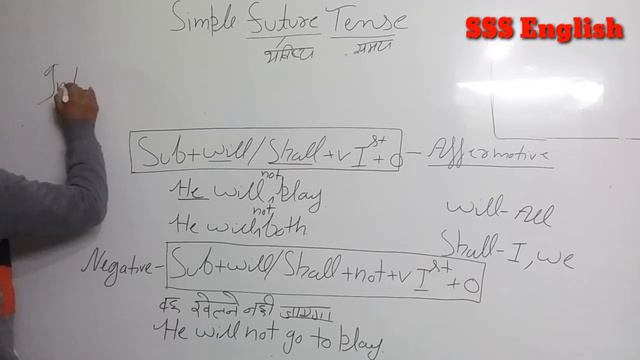 SSS English
Simple Future Tense
भविष्य समय
Int
Sub+will/Shall+v I st +O - Affermotive
not
He will, play
not
He will both
will-All
Shall-I, we
Negative- Sub+will/Shall+not+v I st +O
वह खेलने नहीं जाएगा
He will not go to play.